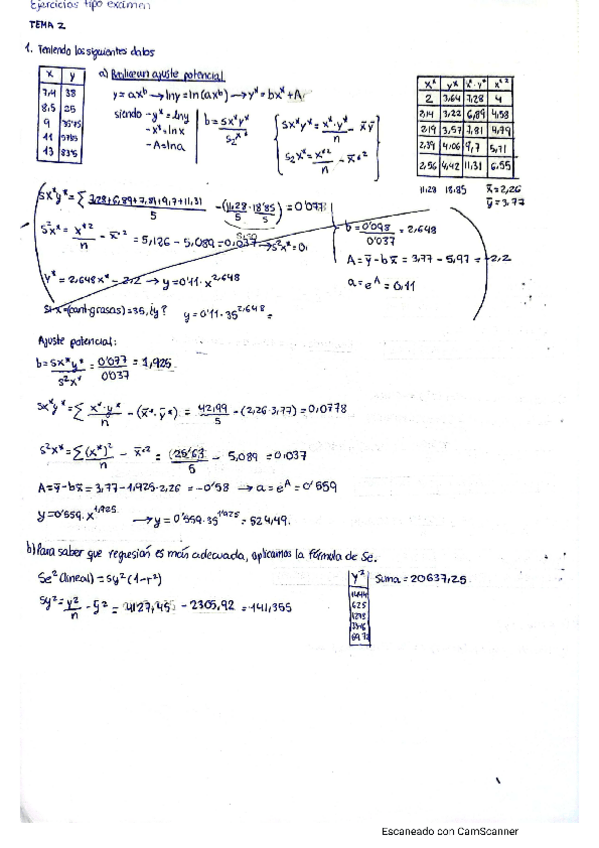 Ejercicios tipo examen
TEMA 2
1. Teniendo los siguientes datos
x y
7,4 38
8,5 25
9 35'45
11 57'85
13 83'5
a) Realice un ajuste potencial
y=ax^b → lny = ln(ax^b) → y* = bx*+A
siendo - y* = lny
- x* = lnx
- A = lna
b = sx*y* / s²x*
sx*y* = x*·y* / n - x̄ȳ
s²x* = x*² / n - x̄*²
x* y* x*·y* x*²
2 3,64 7,28 4
2,14 3,22 6,89 4,58
2,19 3,57 7,81 4,79
2,39 4,06 9,7 5,71
2,56 4,42 11,31 6,55
11,28 18,85 x̄=2,26
ȳ=3,77
sx*y* = Σ 7,28+6,89+7,81+9,7+11,31 / 5 - (11,28/5 · 18,85/5) = 0'077
s²x* = x*² / n - x̄*² = 5,126 - 5,089 = 0,037 → s²x* = 0,
b = 0'098 / 0'037 = 2,648
A = ȳ - bx̄ = 3,77 - 5,97 = -2,2
a = e^A = 0,11
y* = 2,648x* - 2,2 → y = 0'11·x^2,648
si x = (cant. grasas) = 35, ¿y? y = 0'11·35^2,648 =
Ajuste potencial:
b = sx*y* / s²x* = 0'077 / 0'037 = 1,925
sx*y* = Σ x*·y* / n - (x̄*·ȳ*) = 42,99 / 5 - (2,26·3,77) = 0,0778
s²x* = Σ (x*)² / n - x̄*² = (25'63 / 5 - 5,089 = 0,037
A = ȳ - bx̄ = 3,77 - 1,925·2,26 = -0'58 → a = e^A = 0'559
y = 0'559·x^1,925 → y = 0'559·35^1'925 = 524,49.
b) Para saber que regresión es más adecuada, aplicamos la fórmula de Se.
Se² (lineal) = sy² (1-r²)
Sy² = y² / n - ȳ² = 4127,45 - 2305,92 = 141,355
y² Suma = 20637,25
625
Escaneado con CamScanner